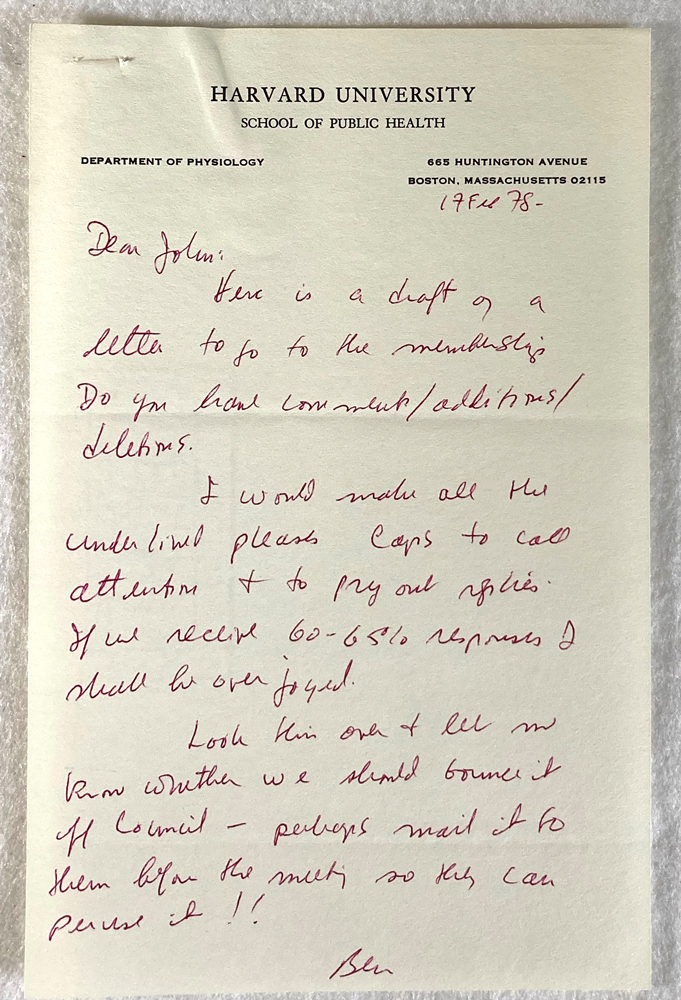 HARVARD UNIVERSITY
SCHOOL OF PUBLIC HEALTH
DEPARTMENT OF PHYSIOLOGY
665 HUNTINGTON AVENUE
BOSTON, MASSACHUSETTS 02115
17 Feb 78-
Dear John:
Here is a draft of a
letter to go to the membership
Do you have comments/additions/
deletions.
I would make all the
underlined pleases Caps to call
attention + to pry out replies.
If we receive 60-65% responses I
shall be overjoyed.
Look this over + let me
know whether we should bounce it
off Council - perhaps mail it to
them before the meeting so they can
peruse it !!
Ben